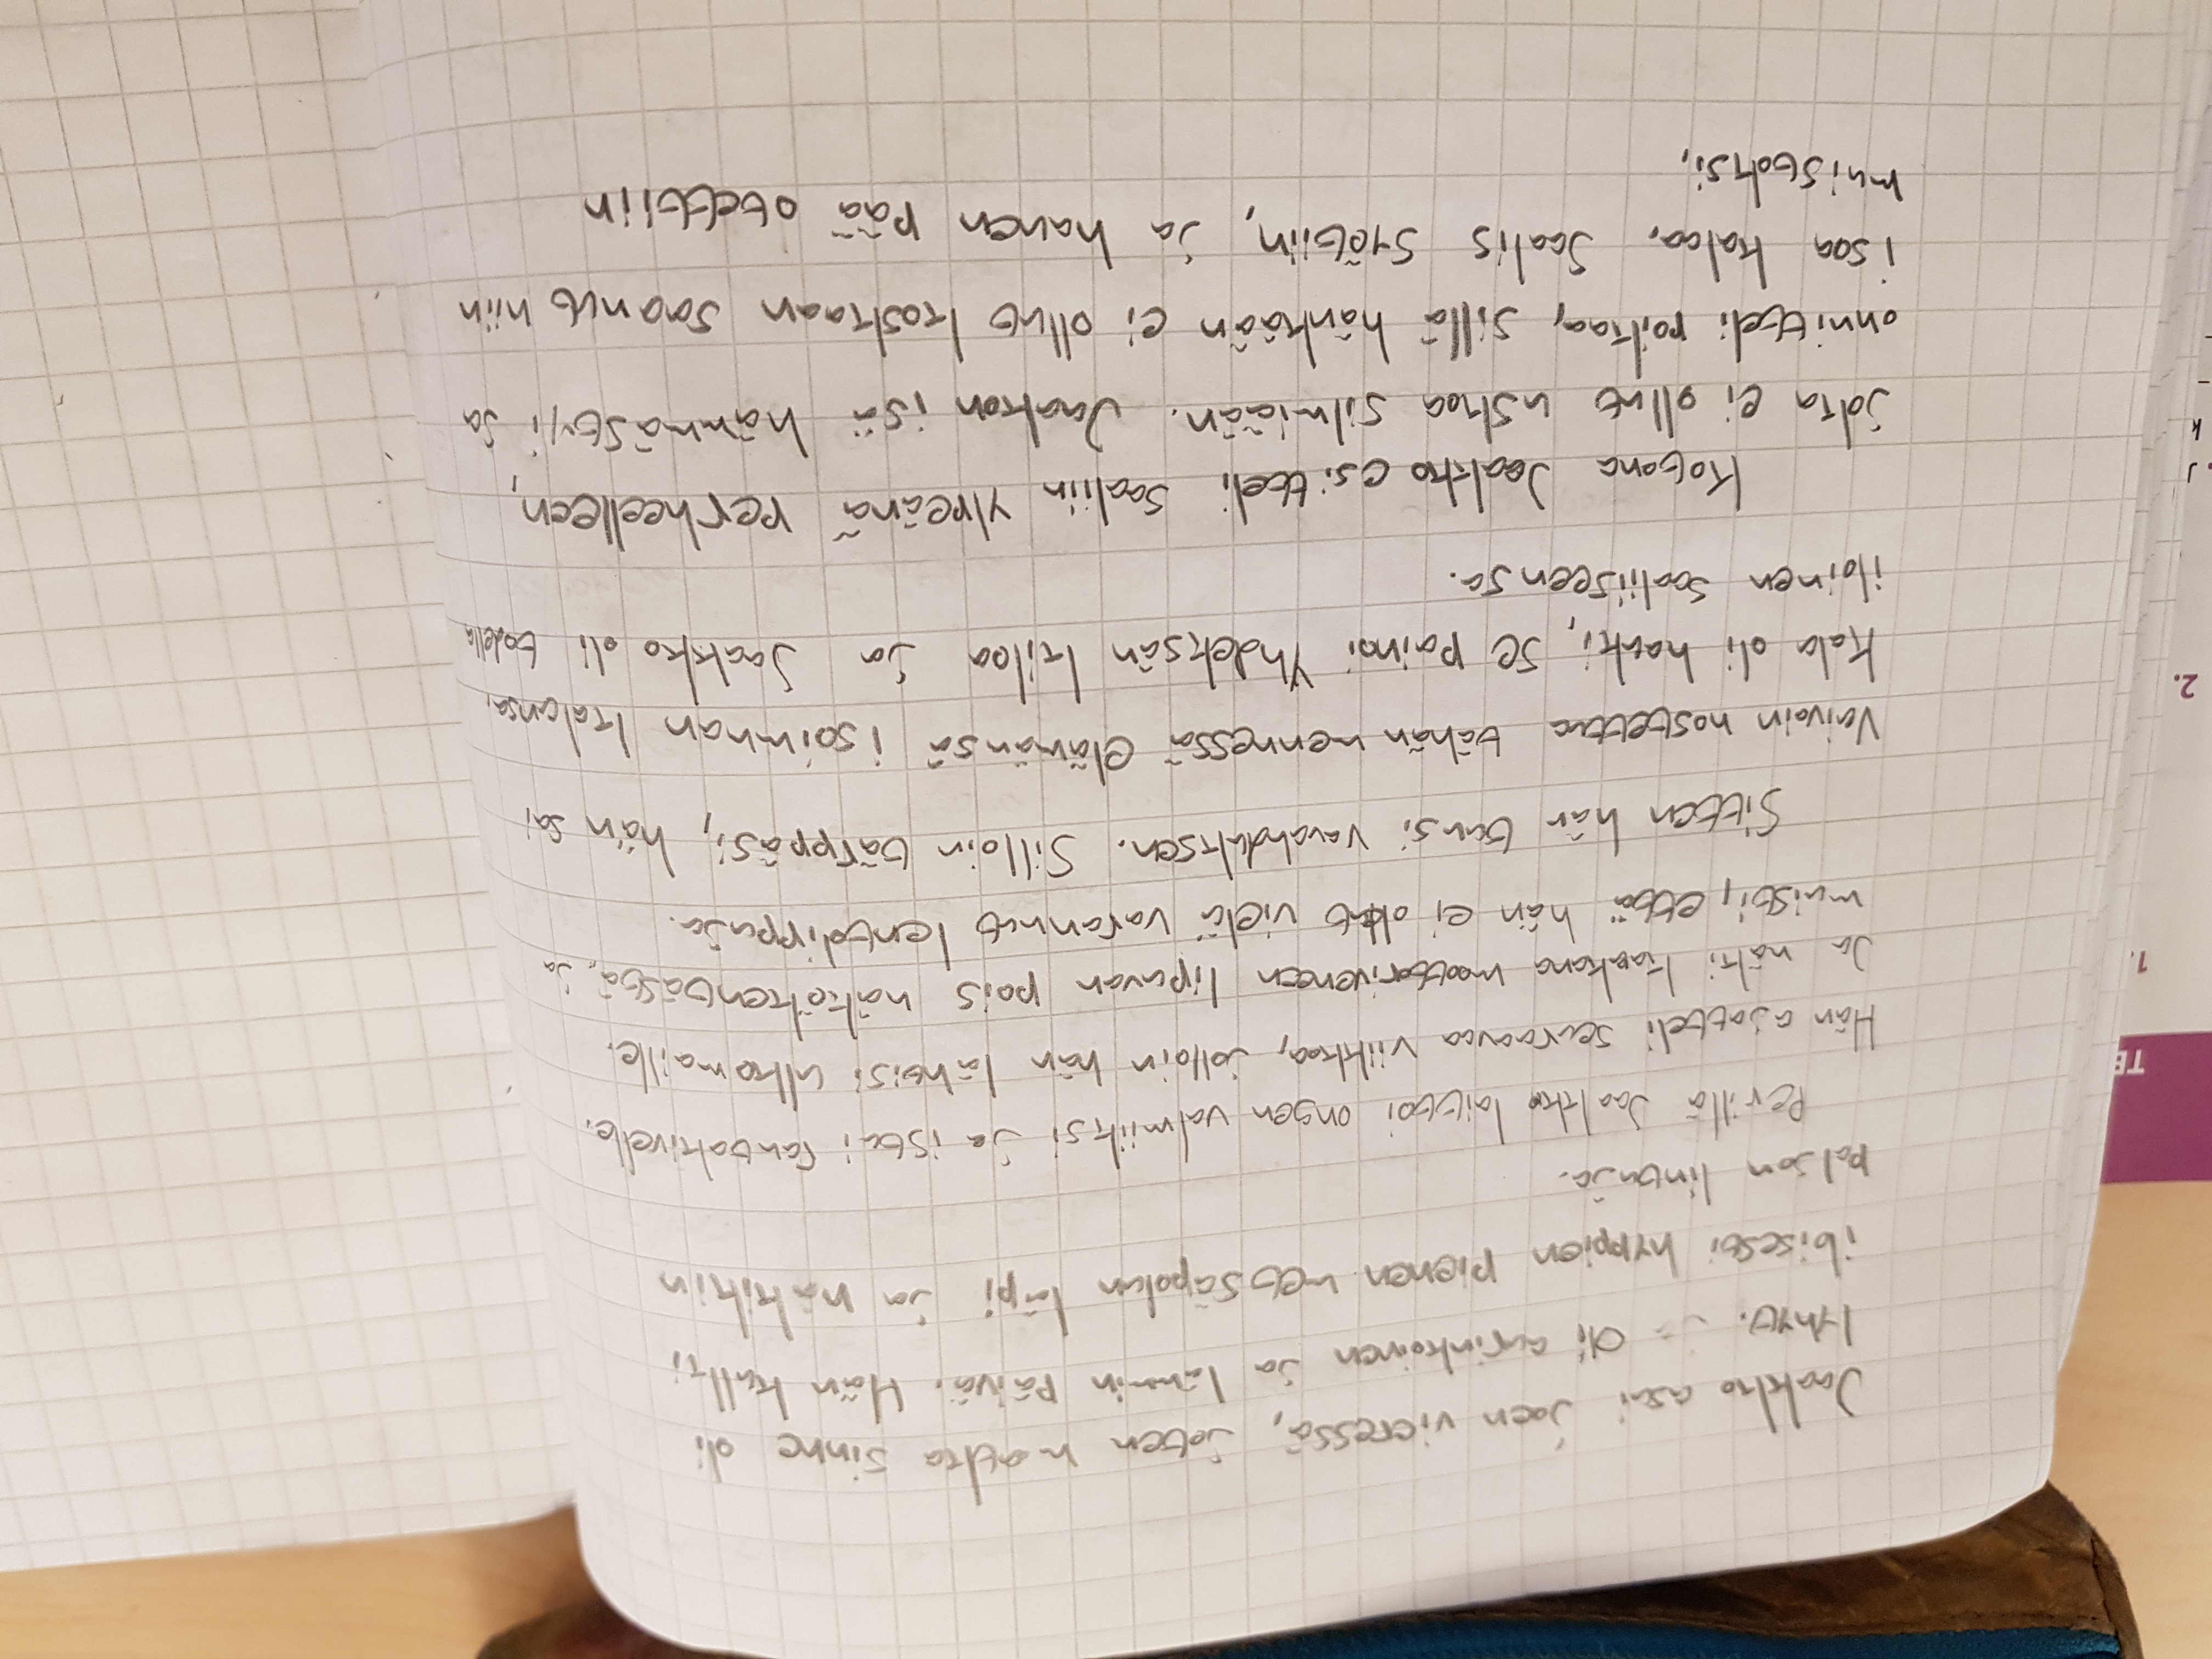 Jaakko asui joen vieressä, joten matka sinne oli
lyhyt. Oli aurinkoinen ja lämmin päivä. Hän kulki
iloisesti hyppien pienen metsäpolun läpi ja näkikin
paljon lintuja.
Perillä Jaakko laittoi ongen valmiiksi ja istui rantakivelle.
Hän ajatteli seuraavaa viikkoa, jolloin hän lähtisi ulkomaille.
Ja näki kaukana moottoriveneen lipuvan pois näköKentästä, ja
muisti, että hän ei ollut vielä varannut lentolippuja.
Sitten hän tunsi varahduksen. Silloin tärppäsi, hän sai
Vaivoin nostettua tähän mennessä elämänsä isoimman kalansa.
Kala oli hauki, se painoi Yhdeksän kiloa ja Jaakko oli todella
iloinen saaliiseensa.
Kotona Jaakko esitteli saaliin ylpeänä perheelleen,
joka ei ollut uskoa silmiään. Jaakon isä hämmästyi ja
onnitteli poikaa, sillä hänkään ei ollut koskaan saanut niin
isoa kalaa. Saalis syötiin, ja hauen pää otettiin
muistoksi.
TE
1.
2.